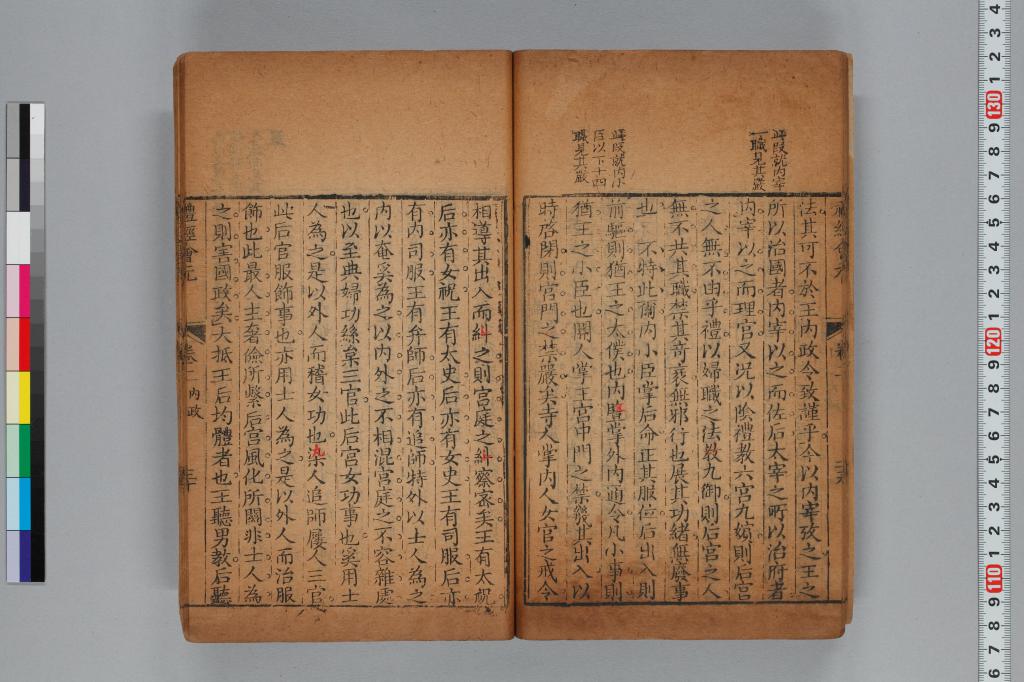 此段就內宰
一職見其嚴
此段就內小
臣以下十四
職見其嚴
法其可不於王內政令致謹乎今以內宰攷之王之
所以治國者內宰以之而佐后太宰之所以治府者
內宰以之而理宮又況以陰禮教六宮九嬪則后宮
之人無不由乎禮以婦職之法教九御則后宮之人
無不共其職禁其奇衺無邪行也展其功緒無廢事
也不特此爾內小臣掌后命正其服位后出入則
前驅則猶王之太僕也內豎掌外內通令凡小事則
猶王之小臣也閽人掌王宮中門之禁發其出入以
時啓閉則宮門之禁嚴矣寺人掌內人女宮之戒令
相導其出入而糾之則宮庭之糾察密矣王有太祝
后亦有女祝王有太史后亦有女史王有司服后亦
有內司服王有弁師后亦有追師特外以士人為之
內以奄奚為之以內外之不相混宮庭之不容雜處
也以至典婦功絲枲三官此后宮女功事也奚用士
人為之是以外人而稽女功也染人追師屨人三官
此后宮服飾事也亦用士人為之是以外人而治服
飾也此最人主奢儉所繫后宮風化所關非士人為
之則害國政矣大抵王后均體者也王聽男教后聽
禮經會元
卷一
內政